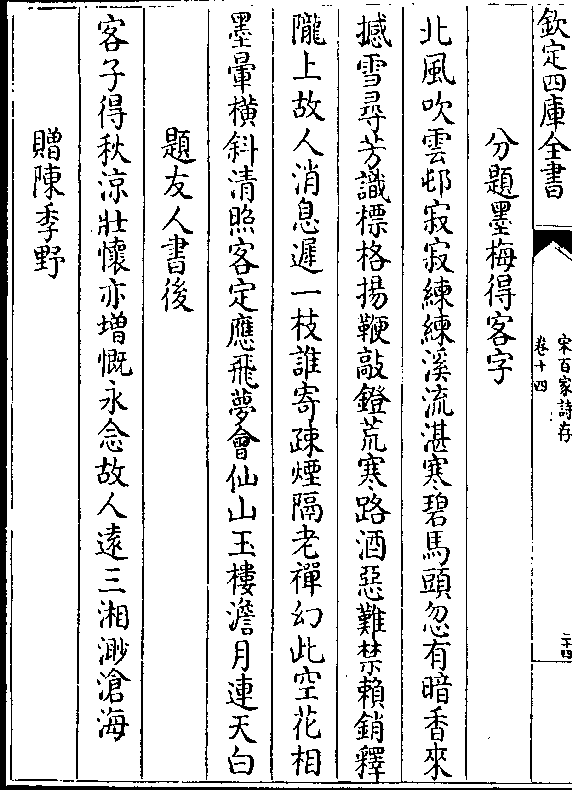 欽定四庫全書
宋百家詩存
卷十四
二十四
分題墨梅得客字
北風吹雲邨寂寂練練溪流湛寒碧馬頭忽有暗香來
撼雪尋芳識標格揚鞭敲鐙荒寒路酒惡難禁賴銷釋
隴上故人消息遲一枝誰寄疎煙隔老禪幻此空花相
墨暈橫斜清照客定應飛夢會仙山玉樓澹月連天白
題友人書後
客子得秋涼壯懷亦增慨永念故人遠三湘渺滄海
贈陳季野